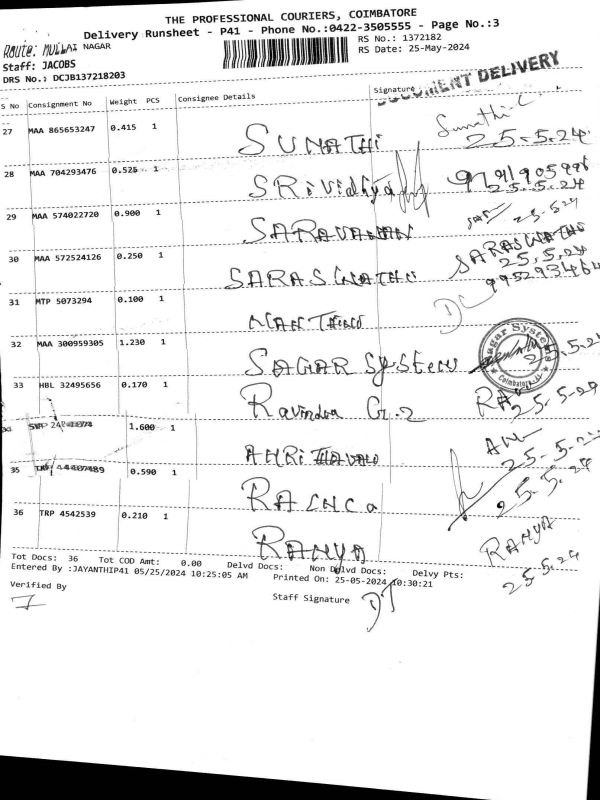 THE PROFESSIONAL COURIERS, COIMBATORE
Delivery Runsheet - P41 - Phone No.:0422-3505555 - Page No.:3
Route: MULLAI NAGAR
RS No.: 1372182
Staff: JACOBS
RS Date: 25-May-2024
DRS No.: DCJB137218203
DOCUMENT DELIVERY
S No Consignment No Weight PCS Consignee Details Signature
27 MAA 865653247 0.415 1 SUMATHI Sumathi.C 25.5.24
28 MAA 704293476 0.525 1 SRividhya 25.5.24
29 MAA 574022720 0.900 1 SARAVANAN 25-5-24
30 MAA 572524126 0.250 1 SARASWATHI SARASWATHI 25.5.24
995293464
31 MTP 5073294 0.100 1 DC
32 MAA 300959305 1.230 1 SAGAR SYSTEM Sagar Systems Coimbatore 25.5.24
33 HBL 32495656 0.170 1 Ravindra G.2 RAV 25.5.24
1.600 1 25-5-24
35 0.590 1 25.5.24
36 TRP 4542539 0.210 1 RANYA RANYA
25.5.24
Tot Docs: 36 Tot COD Amt: 0.00 Delvd Docs: Non Delvd Docs: Delvy Pts:
Entered By :JAYANTHIP41 05/25/2024 10:25:05 AM Printed On: 25-05-2024 10:30:21
Verified By Staff Signature